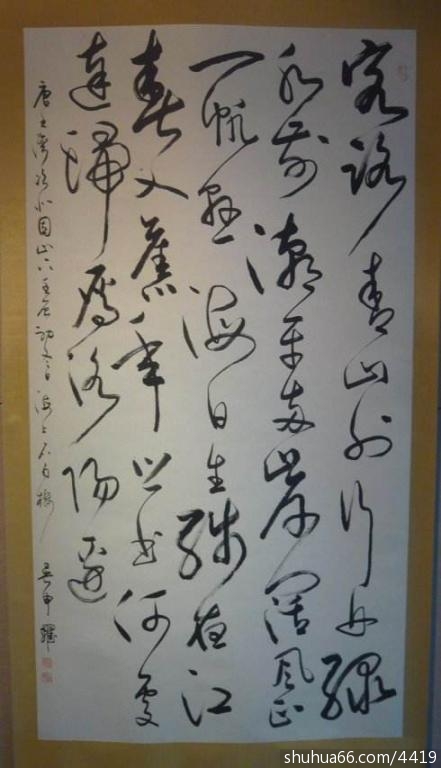 客路青山外行舟綠
水前潮平兩岸闊風正
一帆懸海日生殘夜江
春入舊年鄉書何處
達歸雁洛陽邊
唐王灣次北固山下 初冬日海上 吴申耀
shuhua66.com/4419